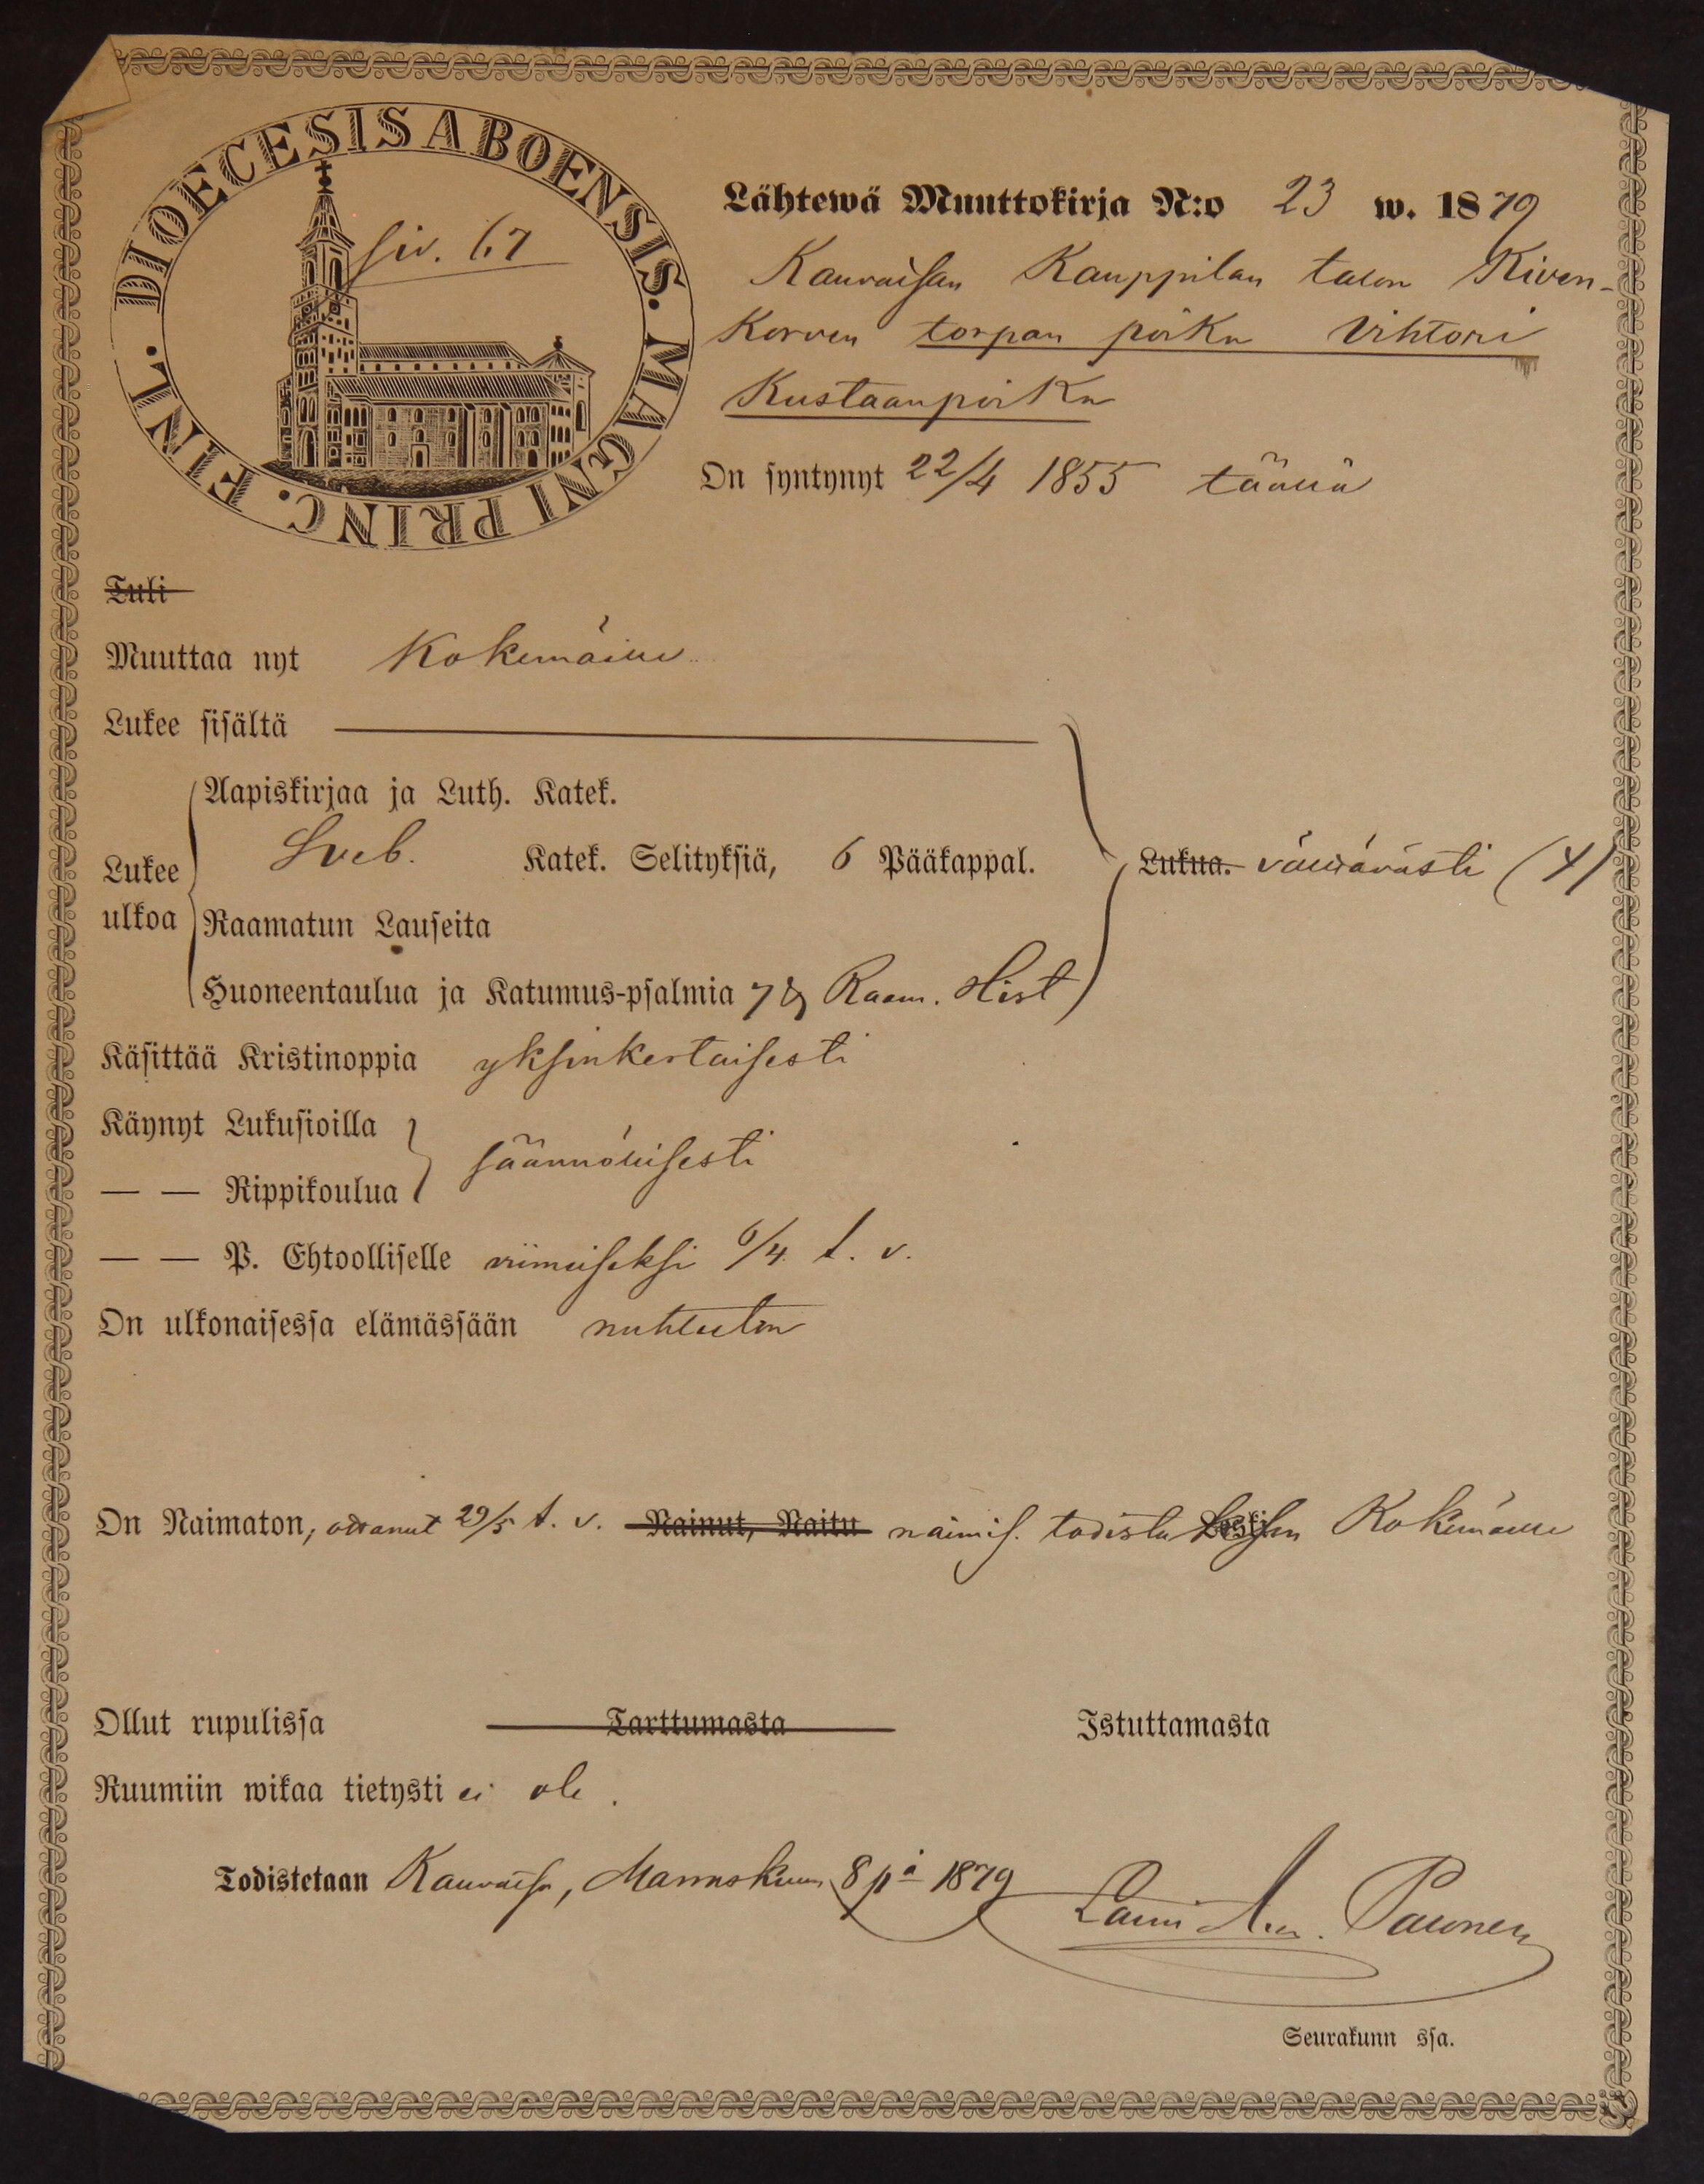 DIOECESIS ABOENSIS. MAGNI PRINC. FINL.
siv. 67
Lähtewä Muuttokirja N:o 23 w. 1879
Kauvaisan Kauppilan talon Kiven-
korven torpan poika Vihtori
Kustaanpoika
On syntynyt 22/4 1855 täällä
Tuli
Muuttaa nyt Kokemäille
Lukee sisältä
Aapiskirjaa ja Luth. Katek.
Lukee ulkoa
Sveb. Katek. Selityksiä, 6 Pääkappal.
Lukua. välttävästi (4)
Raamatun Lauseita
Huoneentaulua ja Katumus-psalmia 7 & Raam. Hist
Käsittää Kristinoppia yksinkertaisesti
Käynyt Lukusioilla
säännöllisesti
— — Rippikoulua
— — P. Ehtoolliselle viimeiseksi 6/4 t. v.
On ulkonaisessa elämässään nuhteeton
On Naimaton, ottanut 29/5 t. v. Nainut, Naitu naimis. todistuksen Leski Kokemäille
Ollut rupulissa Tarttumasta Istuttamasta
Ruumiin wikaa tietysti ei ole.
Todistetaan Kauvatsa, Marraskuun 8 pä 1879
Seurakunn ssa.